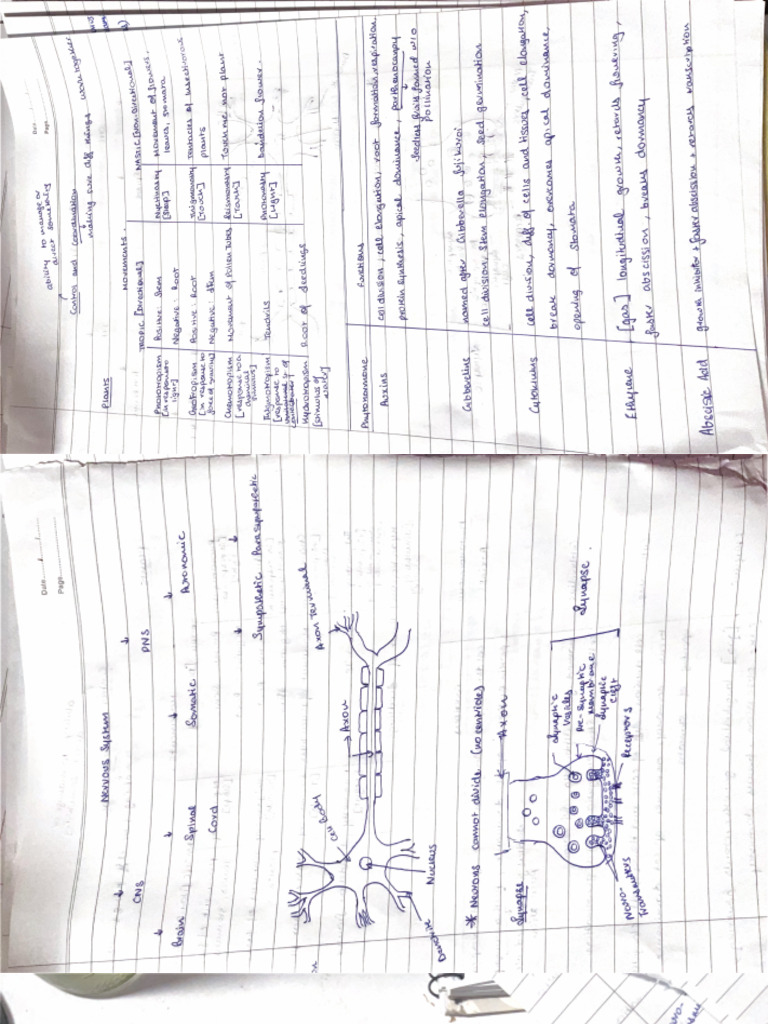 Date
Page
ability to manage or
direct something
Control and coordination
making sure diff things work together
Plants
MOVEMENTS
TROPIC [Directional]
NASTIC [Non-directional]
Phototropism
[in response to
light]
Positive: Stem
Negative: Root
Nyctinasty
[Sleep]
Movement of flowers,
leaves, stomata
Geotropism
[in response to
force of gravity]
Positive: Root
Negative: Stem
Thigmonasty
[Touch]
Tentacles of insectivorous
plants
Chemotropism
[response to a
chemical
stimulus]
Movement of Pollen Tubes
Seismonasty
Touch me not plant
Thigmotropism
[response to
Tendrils
Photonasty
[Light]
Dandelion flower.
Hydrotropism
[stimulus of
water]
Root of seedlings
Phytohormone
Functions
Auxins
cell division, cell elongation, root formation, respiration
protein synthesis, apical dominance, parthenocarpy
seedless fruits formed w/o
pollination
Gibberellins
named after Gibberella fujikuroi
cell division, stem elongation, seed germination
Cytokinins
cell division, diff of cells and tissues, cell elongation,
break dormancy, overcomes apical dominance,
opening of stomata
Ethylene
[gas] longitudinal growth, retards flowering,
faster abscission, breaks dormancy
Abscisic Acid
growth inhibitor + faster abscission + reverses transcription
Date
Page
NERVOUS System
CNS
PNS
Brain
Spinal
Cord
Somatic
Autonomic
Sympathetic
Parasympathetic
Cell Body
Axon
Axon Terminal
Nucleus
Dendrite
* Neurons cannot divide (no centrioles)
Synapse
Axon
Synaptic
Vesicles
Pre-Synaptic
Membrane
Synaptic
cleft
Synapse
Receptors
Neuro-
transmitters